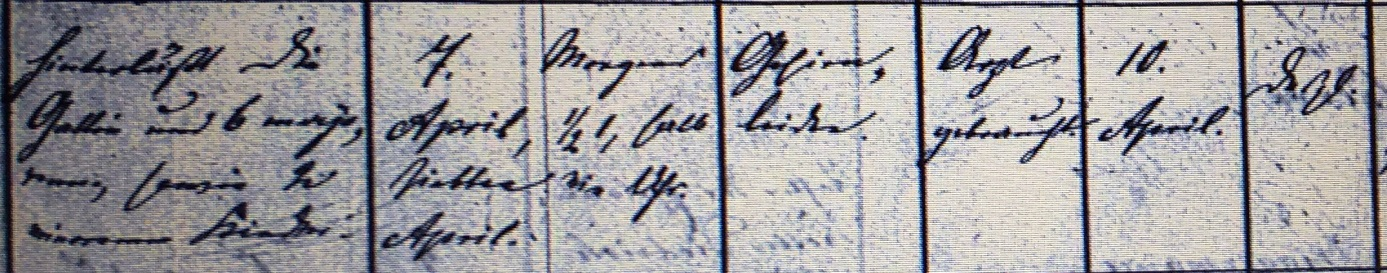 hinterläßt die
Gattin und 6 majo,
renne,
minorenne Kinder.
7.
April,
siebten
April.
Morgens
½1, halb
ein Uhr.
Gehirn,
leiden.
Arzt
gebraucht
10.
April.